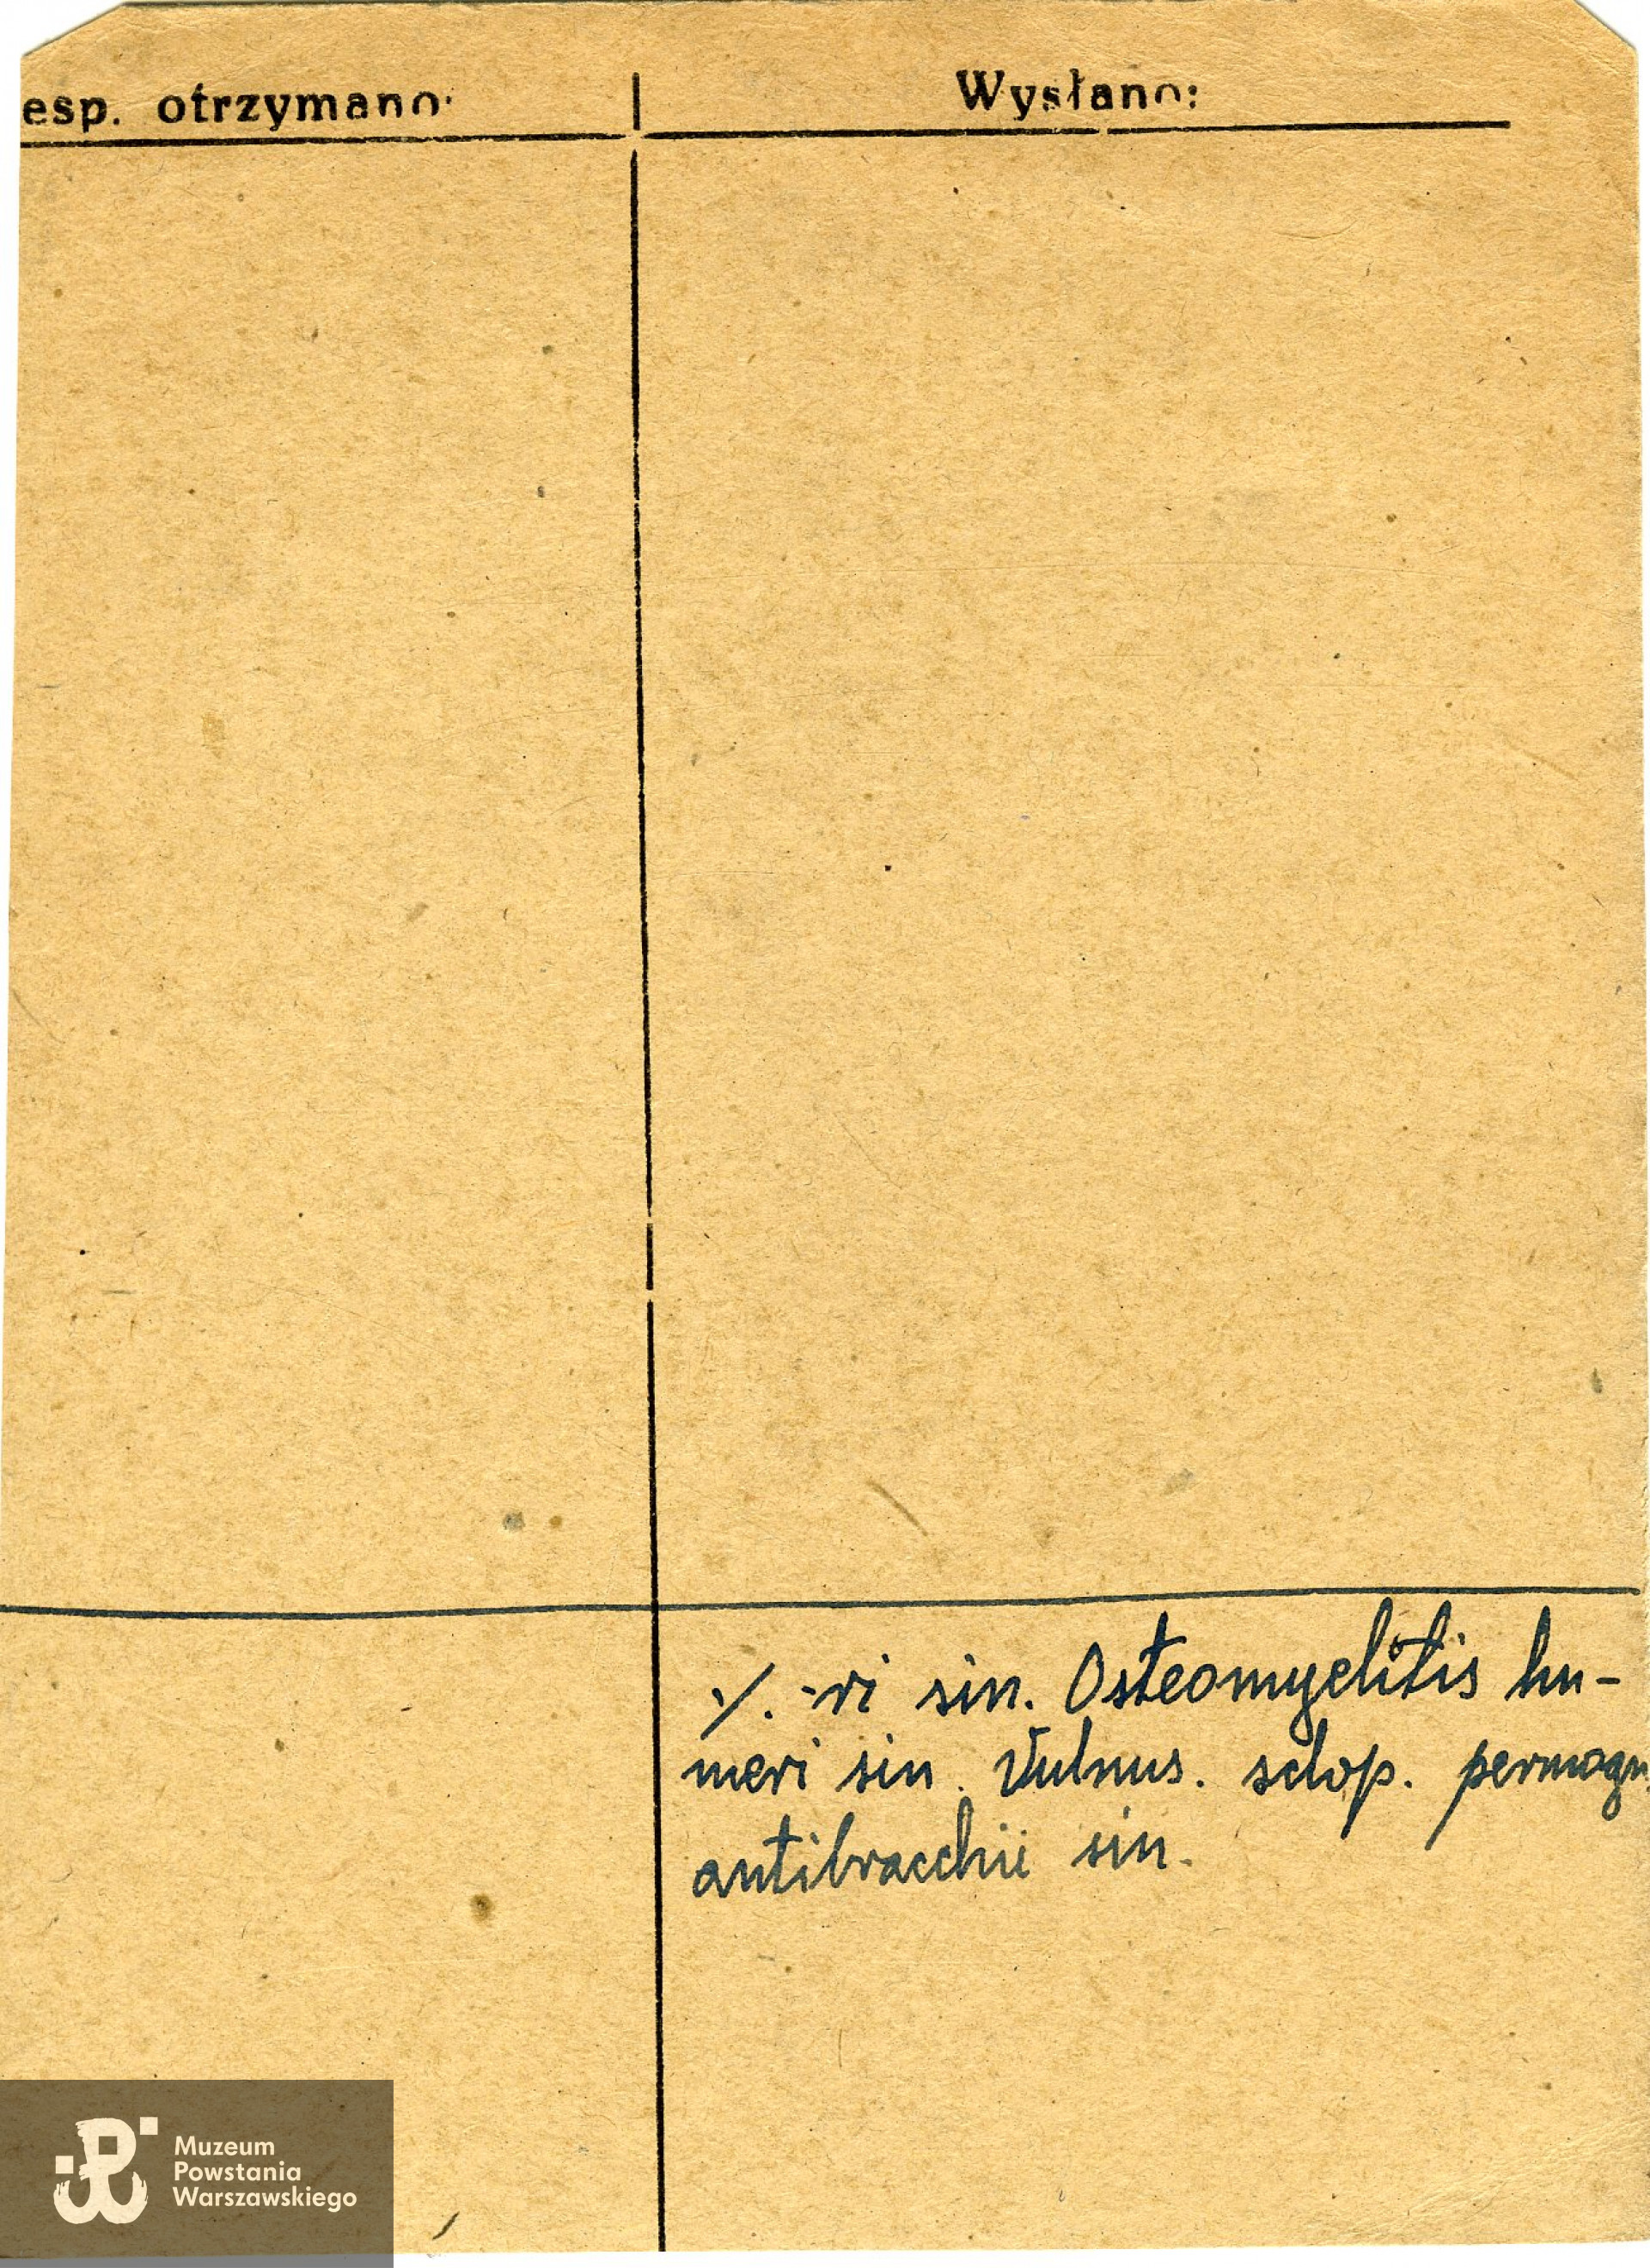 esp. otrzymano:
Wysłano:
·/. -ri sin. Osteomyelitis hu-
meri sin. Vulnus. sclop. permagn.
antibracchii sin.
Muzeum
Powstania
Warszawskiego